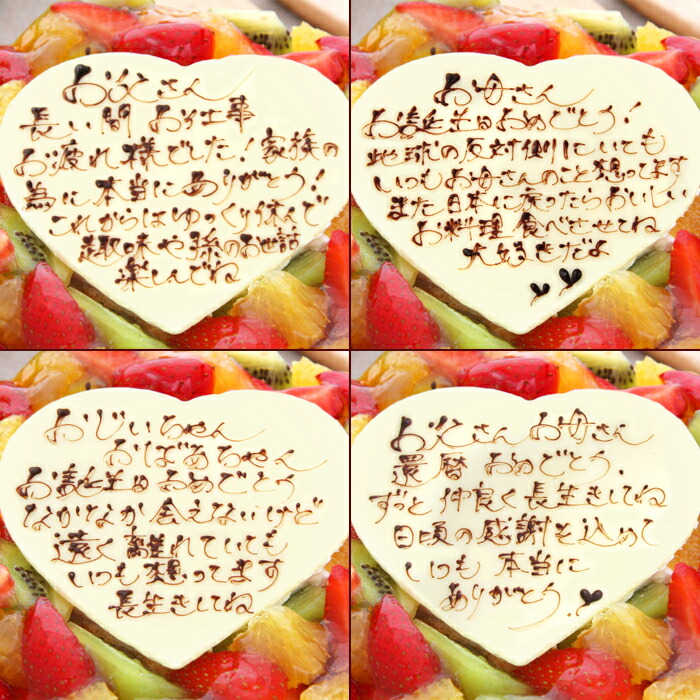 お父さん
長い間 お仕事
お疲れ様でした！家族の
為に本当にありがとう！
これからはゆっくり休んで
趣味や孫のお世話
楽しんでね
お母さん
お誕生日おめでとう！
地球の反対側にいても
いつもお母さんのこと想ってます
また日本に戻ったらおいしい
お料理食べさせてね
大好きだよ
おじいちゃん
おばあちゃん
お誕生日おめでとう
なかなか会えないけど
遠く離れていても
いつも想ってます
長生きしてね
お父さんお母さん
還暦おめでとう.
ずっと仲良く長生きしてね
日頃の感謝を込めて
いつも本当に
ありがとう.